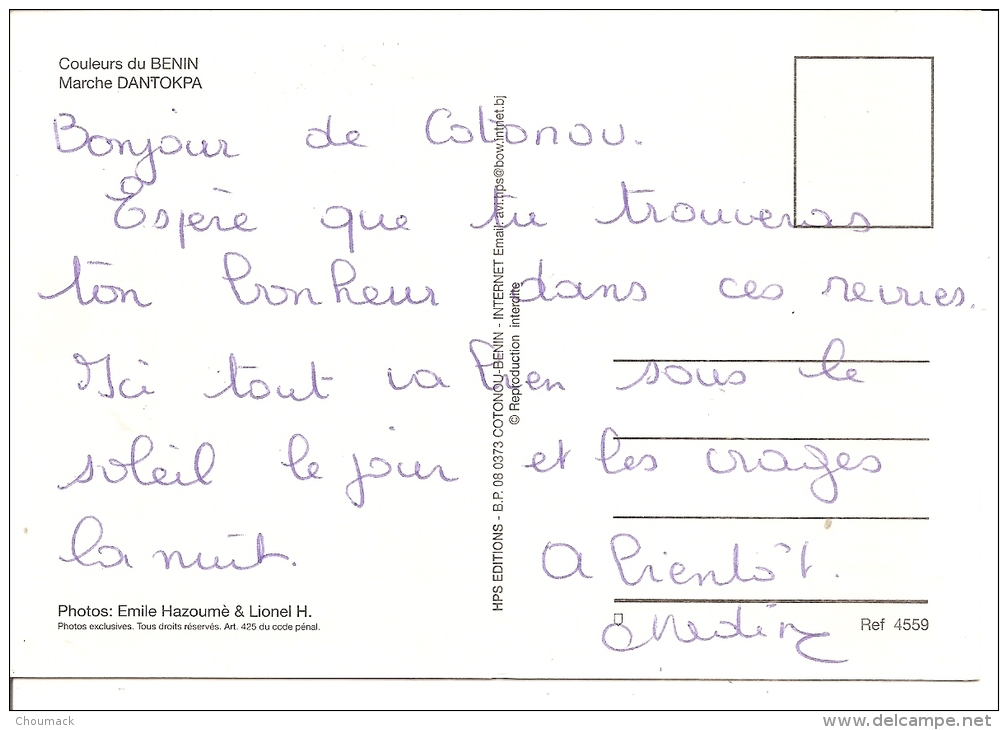 Couleurs du BENIN
Marche DANTOKPA
Bonjour de Cotonou.
Espère que tu trouveras
ton bonheur dans ces revues.
Ici tout va bien sous le
soleil le jour et les orages
la nuit.
A bientôt.
HPS EDITIONS - B.P. 08 0373 COTONOU-BENIN - INTERNET Email ravi.hps@bow.intnet.bj
© Reproduction interdite
Photos: Emile Hazoumè & Lionel H.
Photos exclusives. Tous droits réservés. Art. 425 du code pénal.
Ref 4559
Choumack
www.delcampe.net